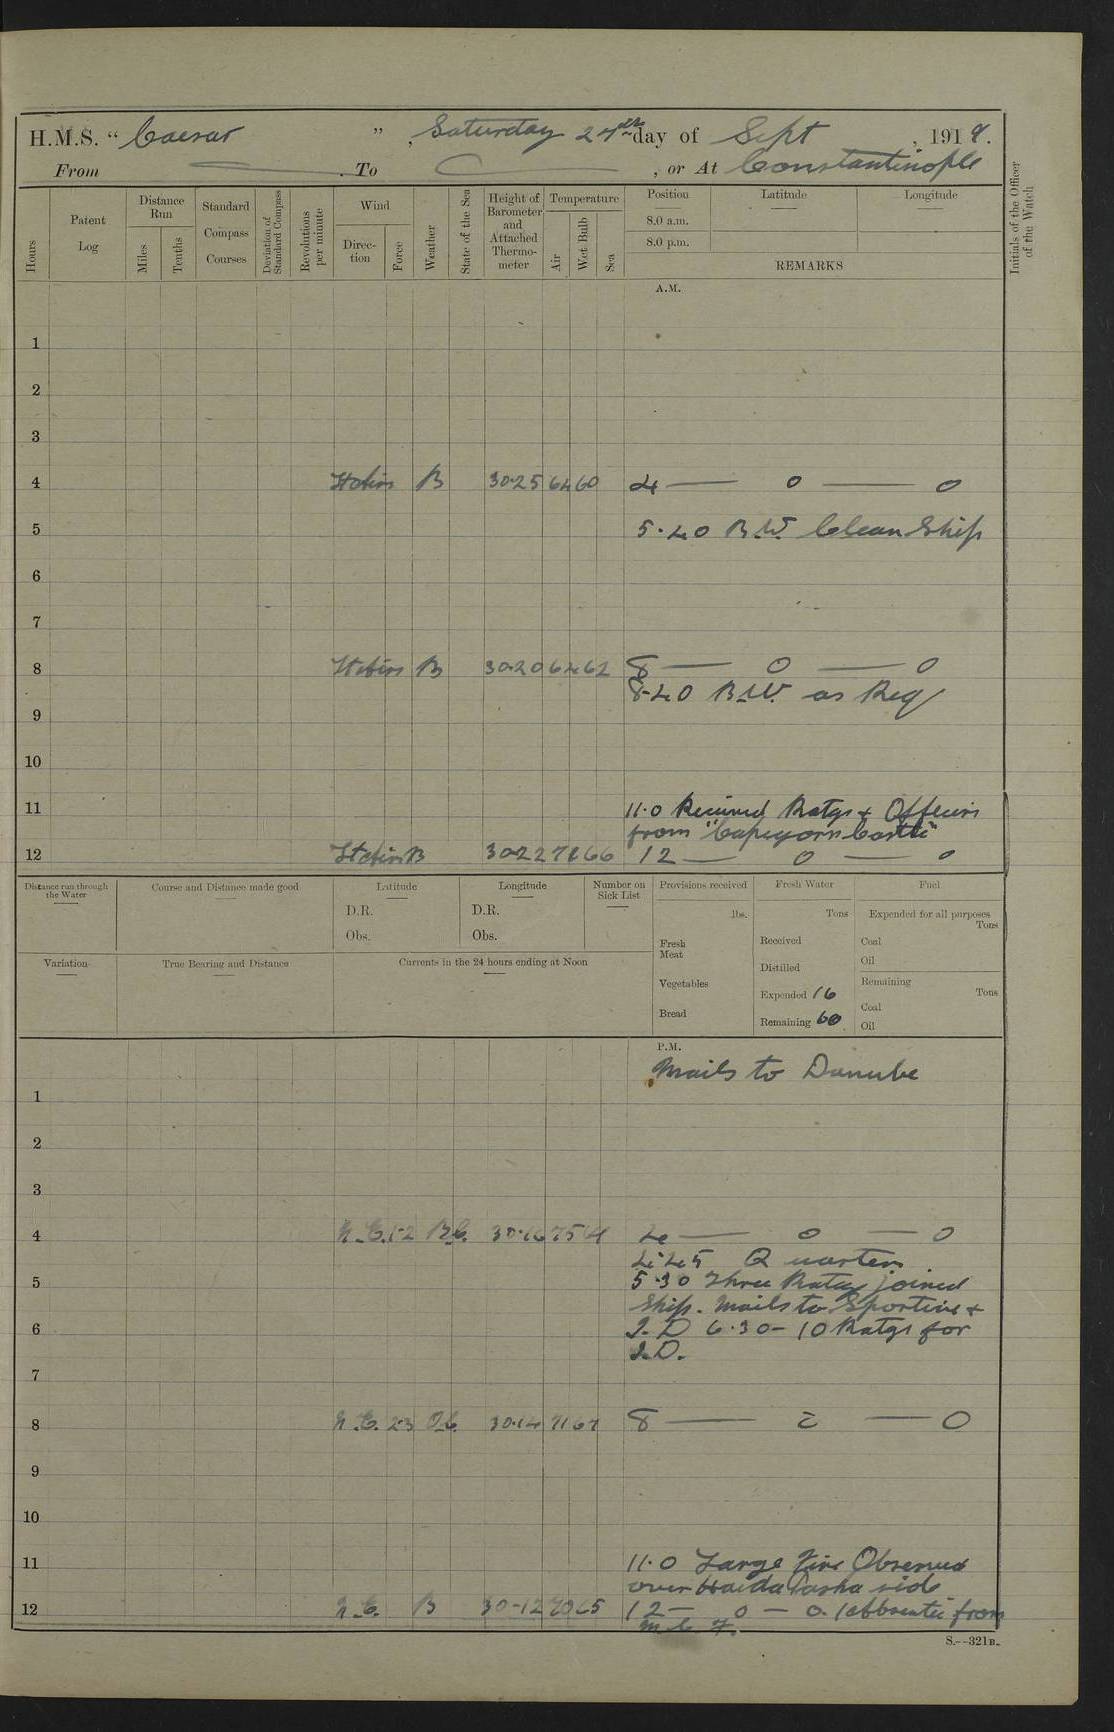 H.M.S. " Caesar ", Saturday 27th day of Sept, 1919.
From . To , or At Constantinople
Hours
Patent Log
Distance Run
Miles
Tenths
Standard Compass Courses
Deviation of Standard Compass
Revolutions per minute
Wind
Direction
Force
Weather
State of the Sea
Height of Barometer and Attached Thermometer
Temperature
Air
Wet Bulb
Sea
Position
Latitude
Longitude
8.0 a.m.
8.0 p.m.
REMARKS
Initials of the Officer of the Watch
A.M.
1
2
3
4 B 30.25 64 60 4 — 0 — 0
5 5.40 B.W. Clean Ship
6
7
8 B 30.20 64 62 8 — 0 — 0
8.40 B.W. as Req
9
10
11 11.0 Received Ratgs & Officers
from
12 B 30.22 66 12 — 0 — 0
Distance run through the Water
Course and Distance made good
Latitude
D.R.
Obs.
Longitude
D.R.
Obs.
Number on Sick List
Provisions received
lbs.
Fresh Meat
Vegetables
Bread
Fresh Water
Tons
Received
Distilled
Expended 16
Remaining 60
Fuel
Expended for all purposes
Tons
Coal
Oil
Remaining
Tons
Coal
Oil
Variation
True Bearing and Distance
Currents in the 24 hours ending at Noon
P.M.
Mails to Danube
1
2
3
4 N.E. 1-2 B.C. 30.16 75 64 4 — 0 — 0
4.45 Quarters
5 5.30 Three Ratgs joined
Ship. Mails to Sportive &
6 I.D 6.30 – 10 Ratgs for
I.D.
7
8 N.E. 2-3 30.14 71 67 8 — 0 — 0
9
10
11 11.0 Large Fire Observed
over Haida Pasha side
12 N.E. B 30.12 70 65 12 — 0 — 0. 1 absentee from
S.--321B.